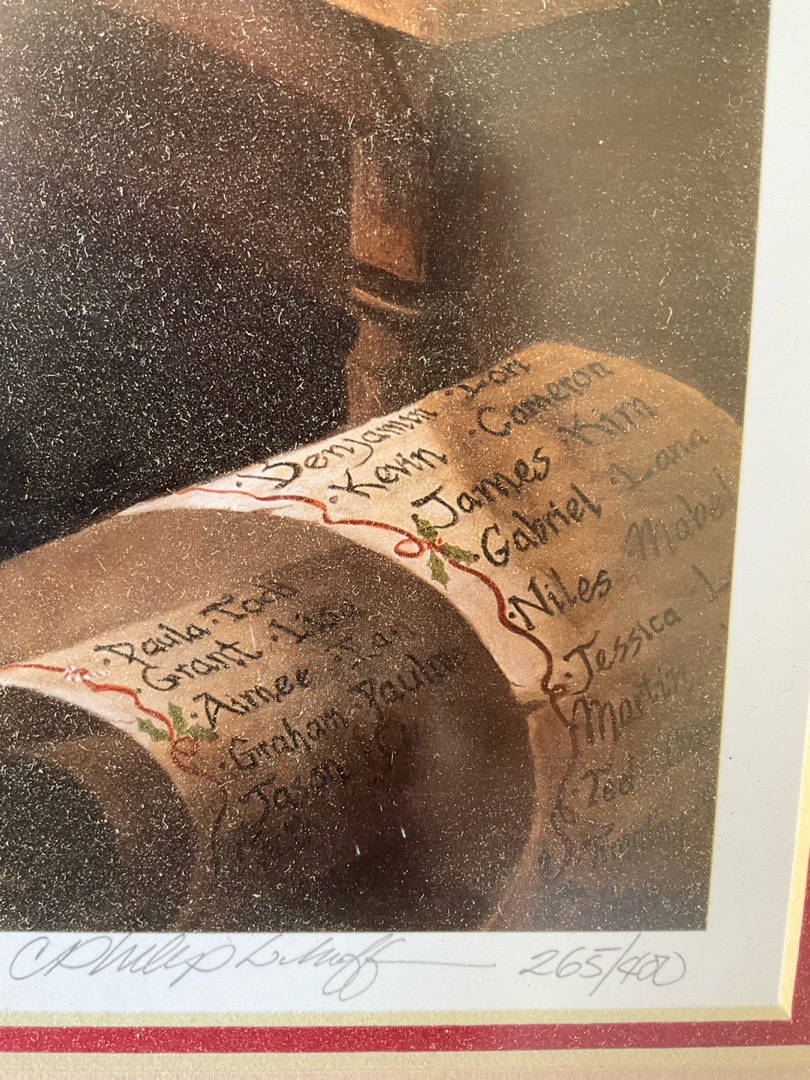 Benjamin · Lori
· Kevin · Cameron
· James
· Gabriel · Lana
· Niles Mabel
· Jessica · L
Martin
· Ted
· Paula · Todd
· Grant · Lisa
· Aimee · Ian
· Graham
Jason
265/400